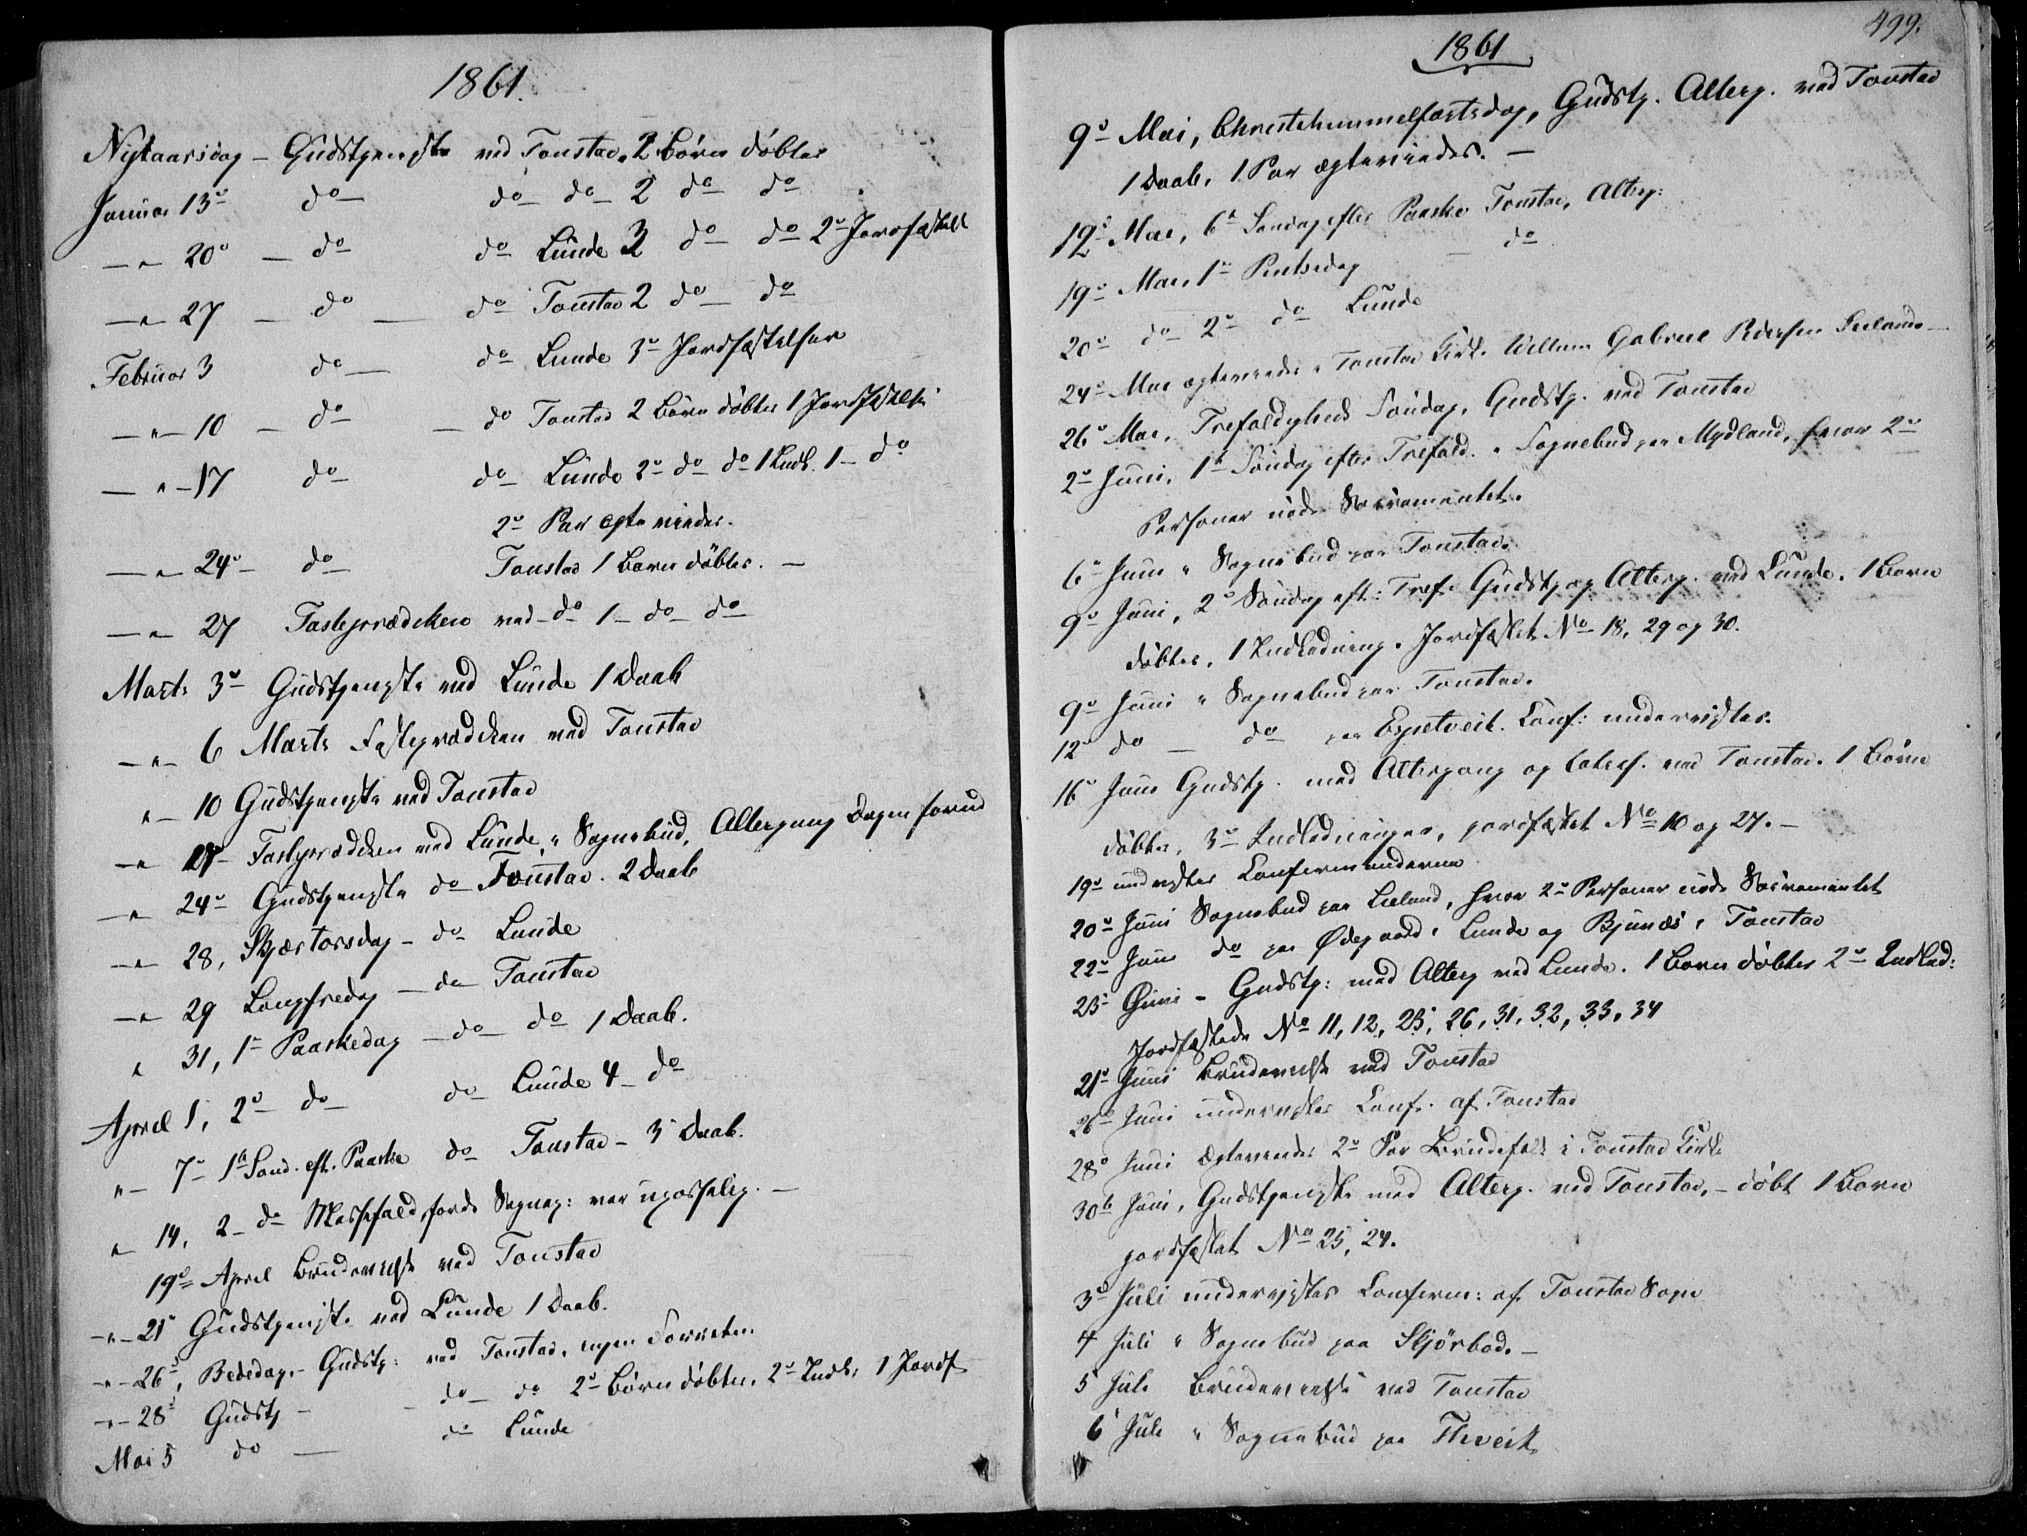 1861.
Nytaarsdag – Gudstjeneste ved Tonstad. 2 Børn døbtes
Januar 13de do do do 2 do do
— " — 20de — do do Lunde 3 do do 2de Jordfæstet
— " — 27 — do — do Tonstad 2 do do
Februar 3 do — do Lunde 3de Jordfæstelser
— " — 10 — do — do Tonstad 2 Børn døbtes 1 Jordfæstelse
— " — 17 do do Lunde 2de do do 1 Indl. 1 – do
2de Par ægteviedes.
— " — 24de — do Tonstad 1 Barn døbtes. —
— " — 27 Fasteprædiken ved do 1 – do do
Marts 3de Gudstjeneste ved Lunde 1 Daab
— " — 6 Marts Fasteprædiken ved Tonstad
" — 10 Gudstjeneste ved Tonstad
— " 17 – Fasteprædiken ved Lunde, i Sognebud, Altergang Dagen forud
— " 24de Gudstjeneste do Tonstad. 2 Daab
— " 28, Skjærtorsdag – do Lunde
— " 29 Langfredag — do Tonstad
" 31, 1ste Paaskedag — do do 1 Daab.
April 1, 2de do do Lunde 4 – do
" — 7de 1ste Sønd. eft. Paaske do Tonstad – 3 Daab.
" 14, 2 – do Messefald, fordi var —
19de April Brudevielse ved Tonstad
— " — 21de Gudstjeneste ved Lunde 1 Daab.
— " — 26de, Bededag. – Gudstj: ved Tonstad, ingen
— " — 28de Gudstj — do – do 2de Børn døbtes. 2de Indl. 1 Jordf.
Mai 5 do — do Lunde
499.
1861
9de Mai, Christihimmelfartsdag, Gudstj. Alterg. ved Tonstad
1 Daab, 1 Par ægteviedes. —
12te Mai, 6te Søndag efter Paaske Tonstad, Alterg:
19de Mai, 1ste Pintsedag — do
20de do – 2den do Lunde
24de Mai ægteviedes i Tonstad Kirke Willum Gabriel Pedersen
26de Mai, Trefoldigheds Søndag, Gudstj. ved Tonstad
2de Juni, 1ste Søndag efter Trefold. i Sognebud paa Mydland, hvor 2de
Personer nøde Sacramentet.
6te Juni i Sognebud paa Tonstad.
9de Juni, 2de Søndag eft: Tref. Gudstj og Alterg. ved Lunde. 1 Barn
døbtes, 1 Indledning. Jordfæstet No 18, 29 og 30.
9de Juni i Sognebud paa Tonstad.
12 do — do paa Espetveit. Conf: underrigtes.
16de Juni Gudstj. med Altergang og ved Tonstad. 1 Børn
døbtes, 3de Indledninger, jordfæstet No 10 og 27. —
19de Confirmanderne
20de Juni Sognebud paa Lieland, hvor 2de Personer nøde Sacramentet
22de Juni do paa Ødegaard i Lunde og Bjunes i Tonstad
23de Juni – Gudstj: med Alterg ved Lunde. 1 Barn døbtes 2de Indled:
Jordfæstede No 11, 12, 23, 26, 31, 32, 33, 34
21de Juni Brudevielse ved Tonstad
26de Juni Conf. af Tonstad
28de Juni Ægteviedes 2de Par Brudefolk i Tonstad Kirke
30te Juni, Gudstjeneste med Alterg. ved Tonstad, – døbt 1 Barn
jordfæstet No 25, 24.
3de Juli Confirm: af Tonstad Sogn
4 Juli i Sognebud paa Skjørbod. —
5 Juli Brudevielse ved Tonstad
6 Juli i Sognebud paa